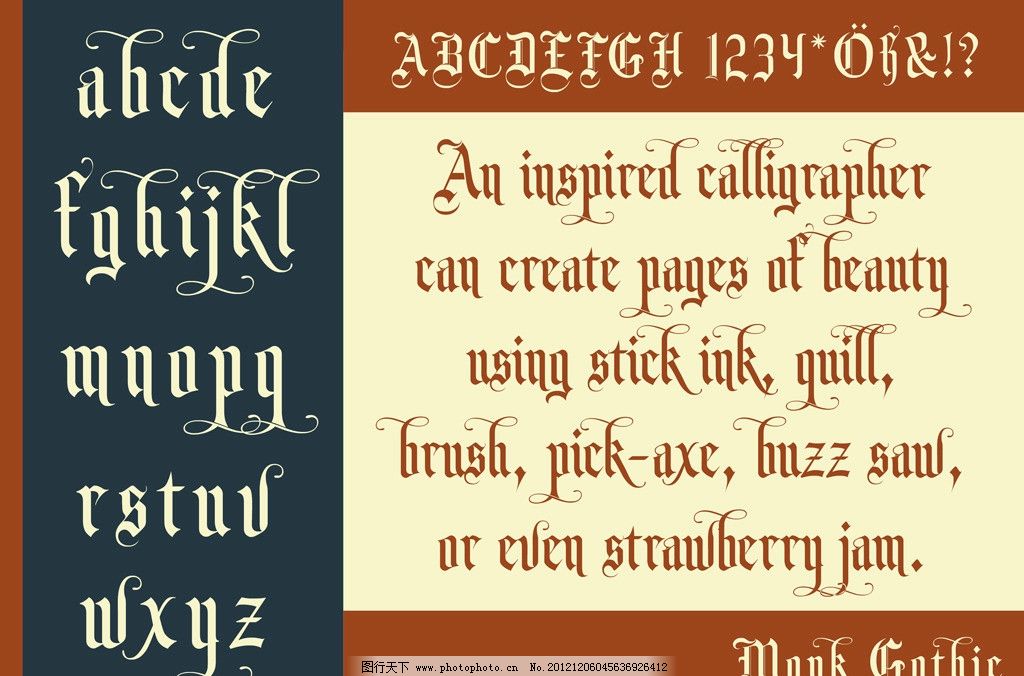 abcde
fghijkl
mnopq
rstuv
wxyz
ABCDEFGH 1234*Öß&!?
An inspired calligrapher
can create pages of beauty
using stick ink, quill,
brush, pick-axe, buzz saw,
or even strawberry jam.
Monk Gothic
图行天下 www.photophoto.cn No.20121206045636926412